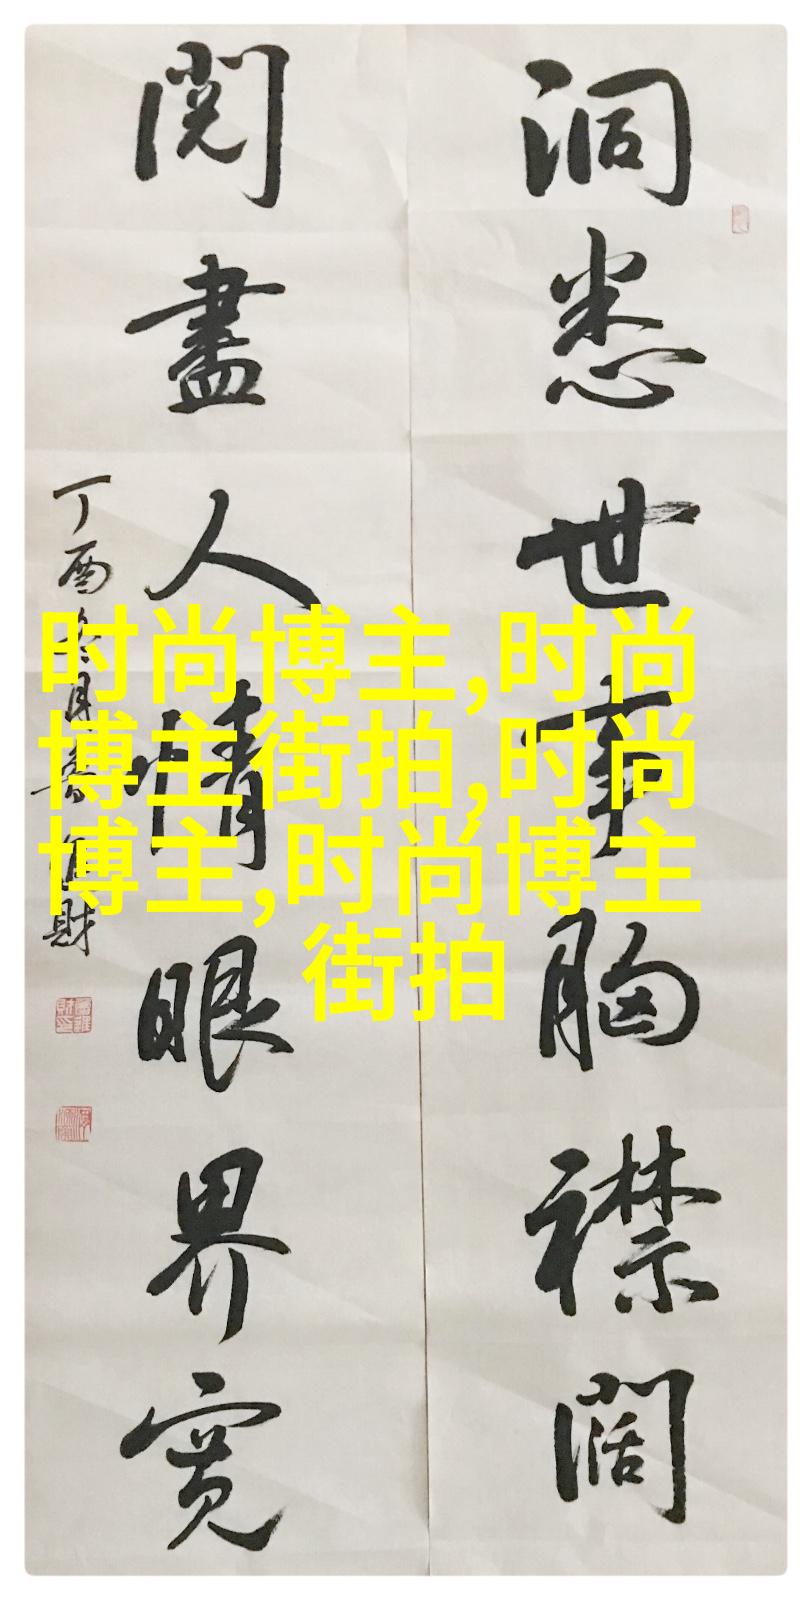 洞悉世事胸襟阔
閱盡人情眼界寬
丁酉冬月
財
时尚博主,时尚
博主街拍,时尚
博主,时尚博主
街拍